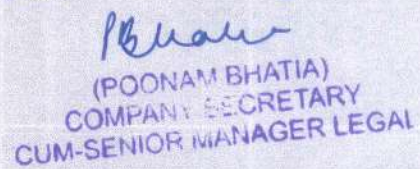 PBhatia
(POONAM BHATIA)
COMPANY SECRETARY
CUM-SENIOR MANAGER LEGAL